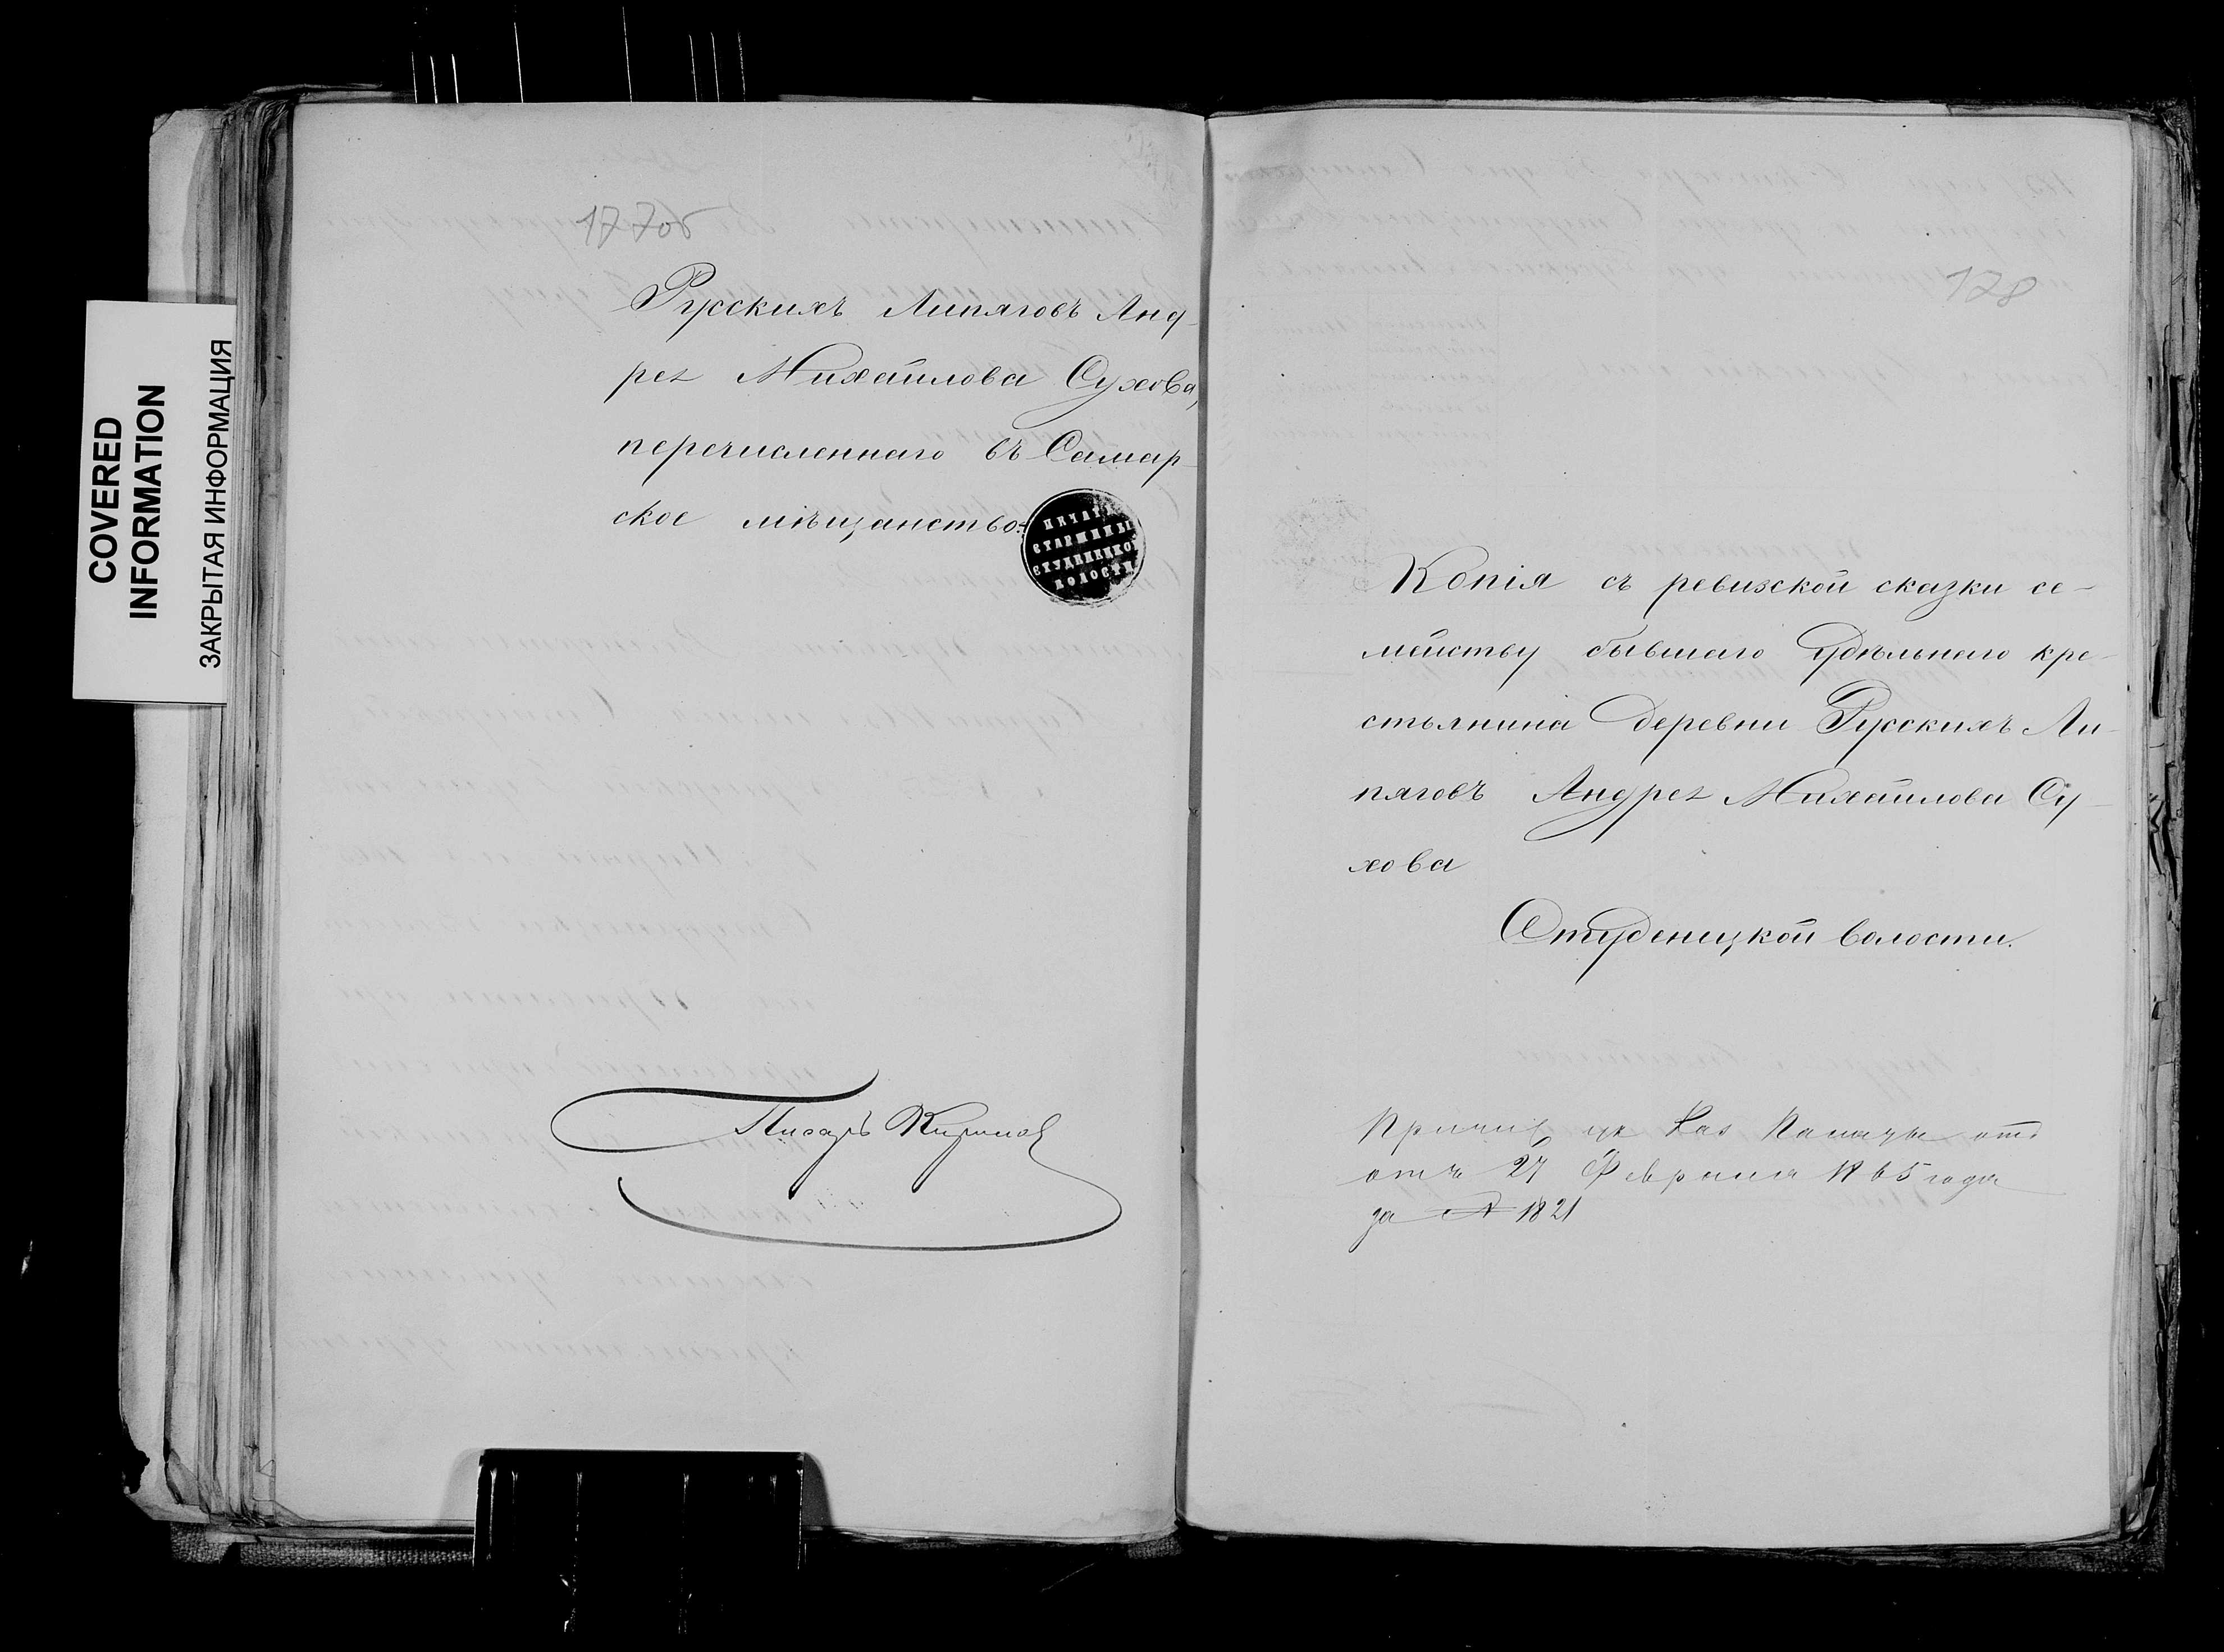 COVERED
INFORMATION
ЗАКРЫТАЯ ИНФОРМАЦИЯ
177об
Русскихъ Липяговъ Анд-
рея Михайлова Сухова,
перечисленнаго въ Самар-
ское мѣщанство.
ПЕЧАТЬ
СТАРШИНЫ
СТУДЕНЕЦКОЙ
ВОЛОСТИ
Писарь
178
Копія съ ревизской сказки се-
мейству бывшаго Удѣльнаго кре-
стьянина Деревни Русскихъ Ли-
пяговъ Андрея Михайлова Су-
хова
Студенецкой волости.
Каз Палаты
отъ 27 Февраля 1865 года
за № 1821